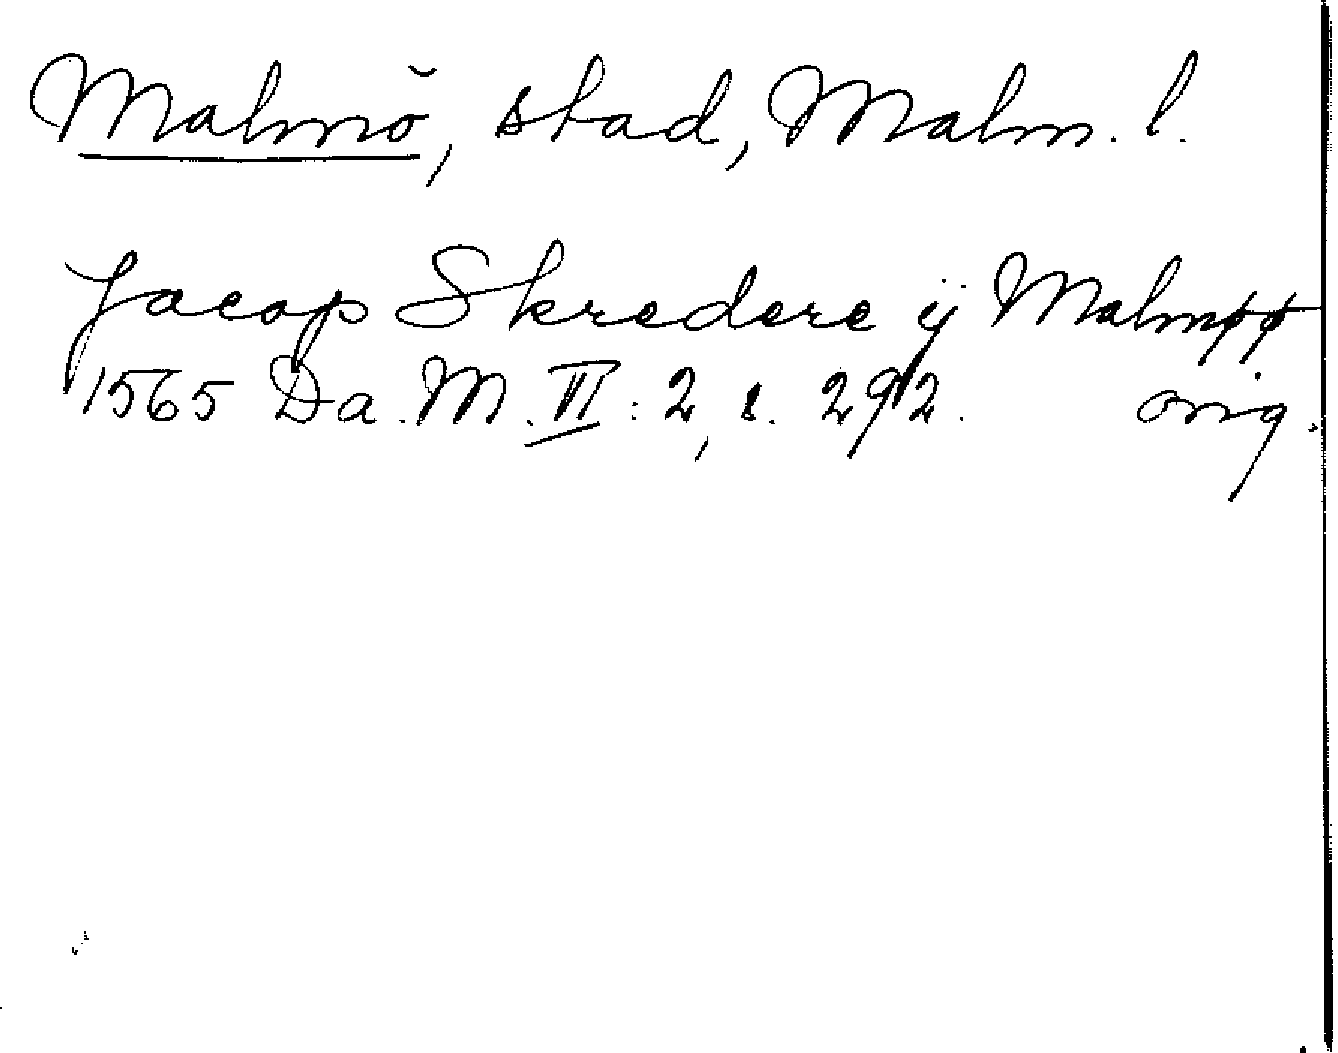 Malmö, stad, Malm. l.
Jacop Skredere ÿ Malmøø
1565 Da. M. VI: 2, s. 292. orig.